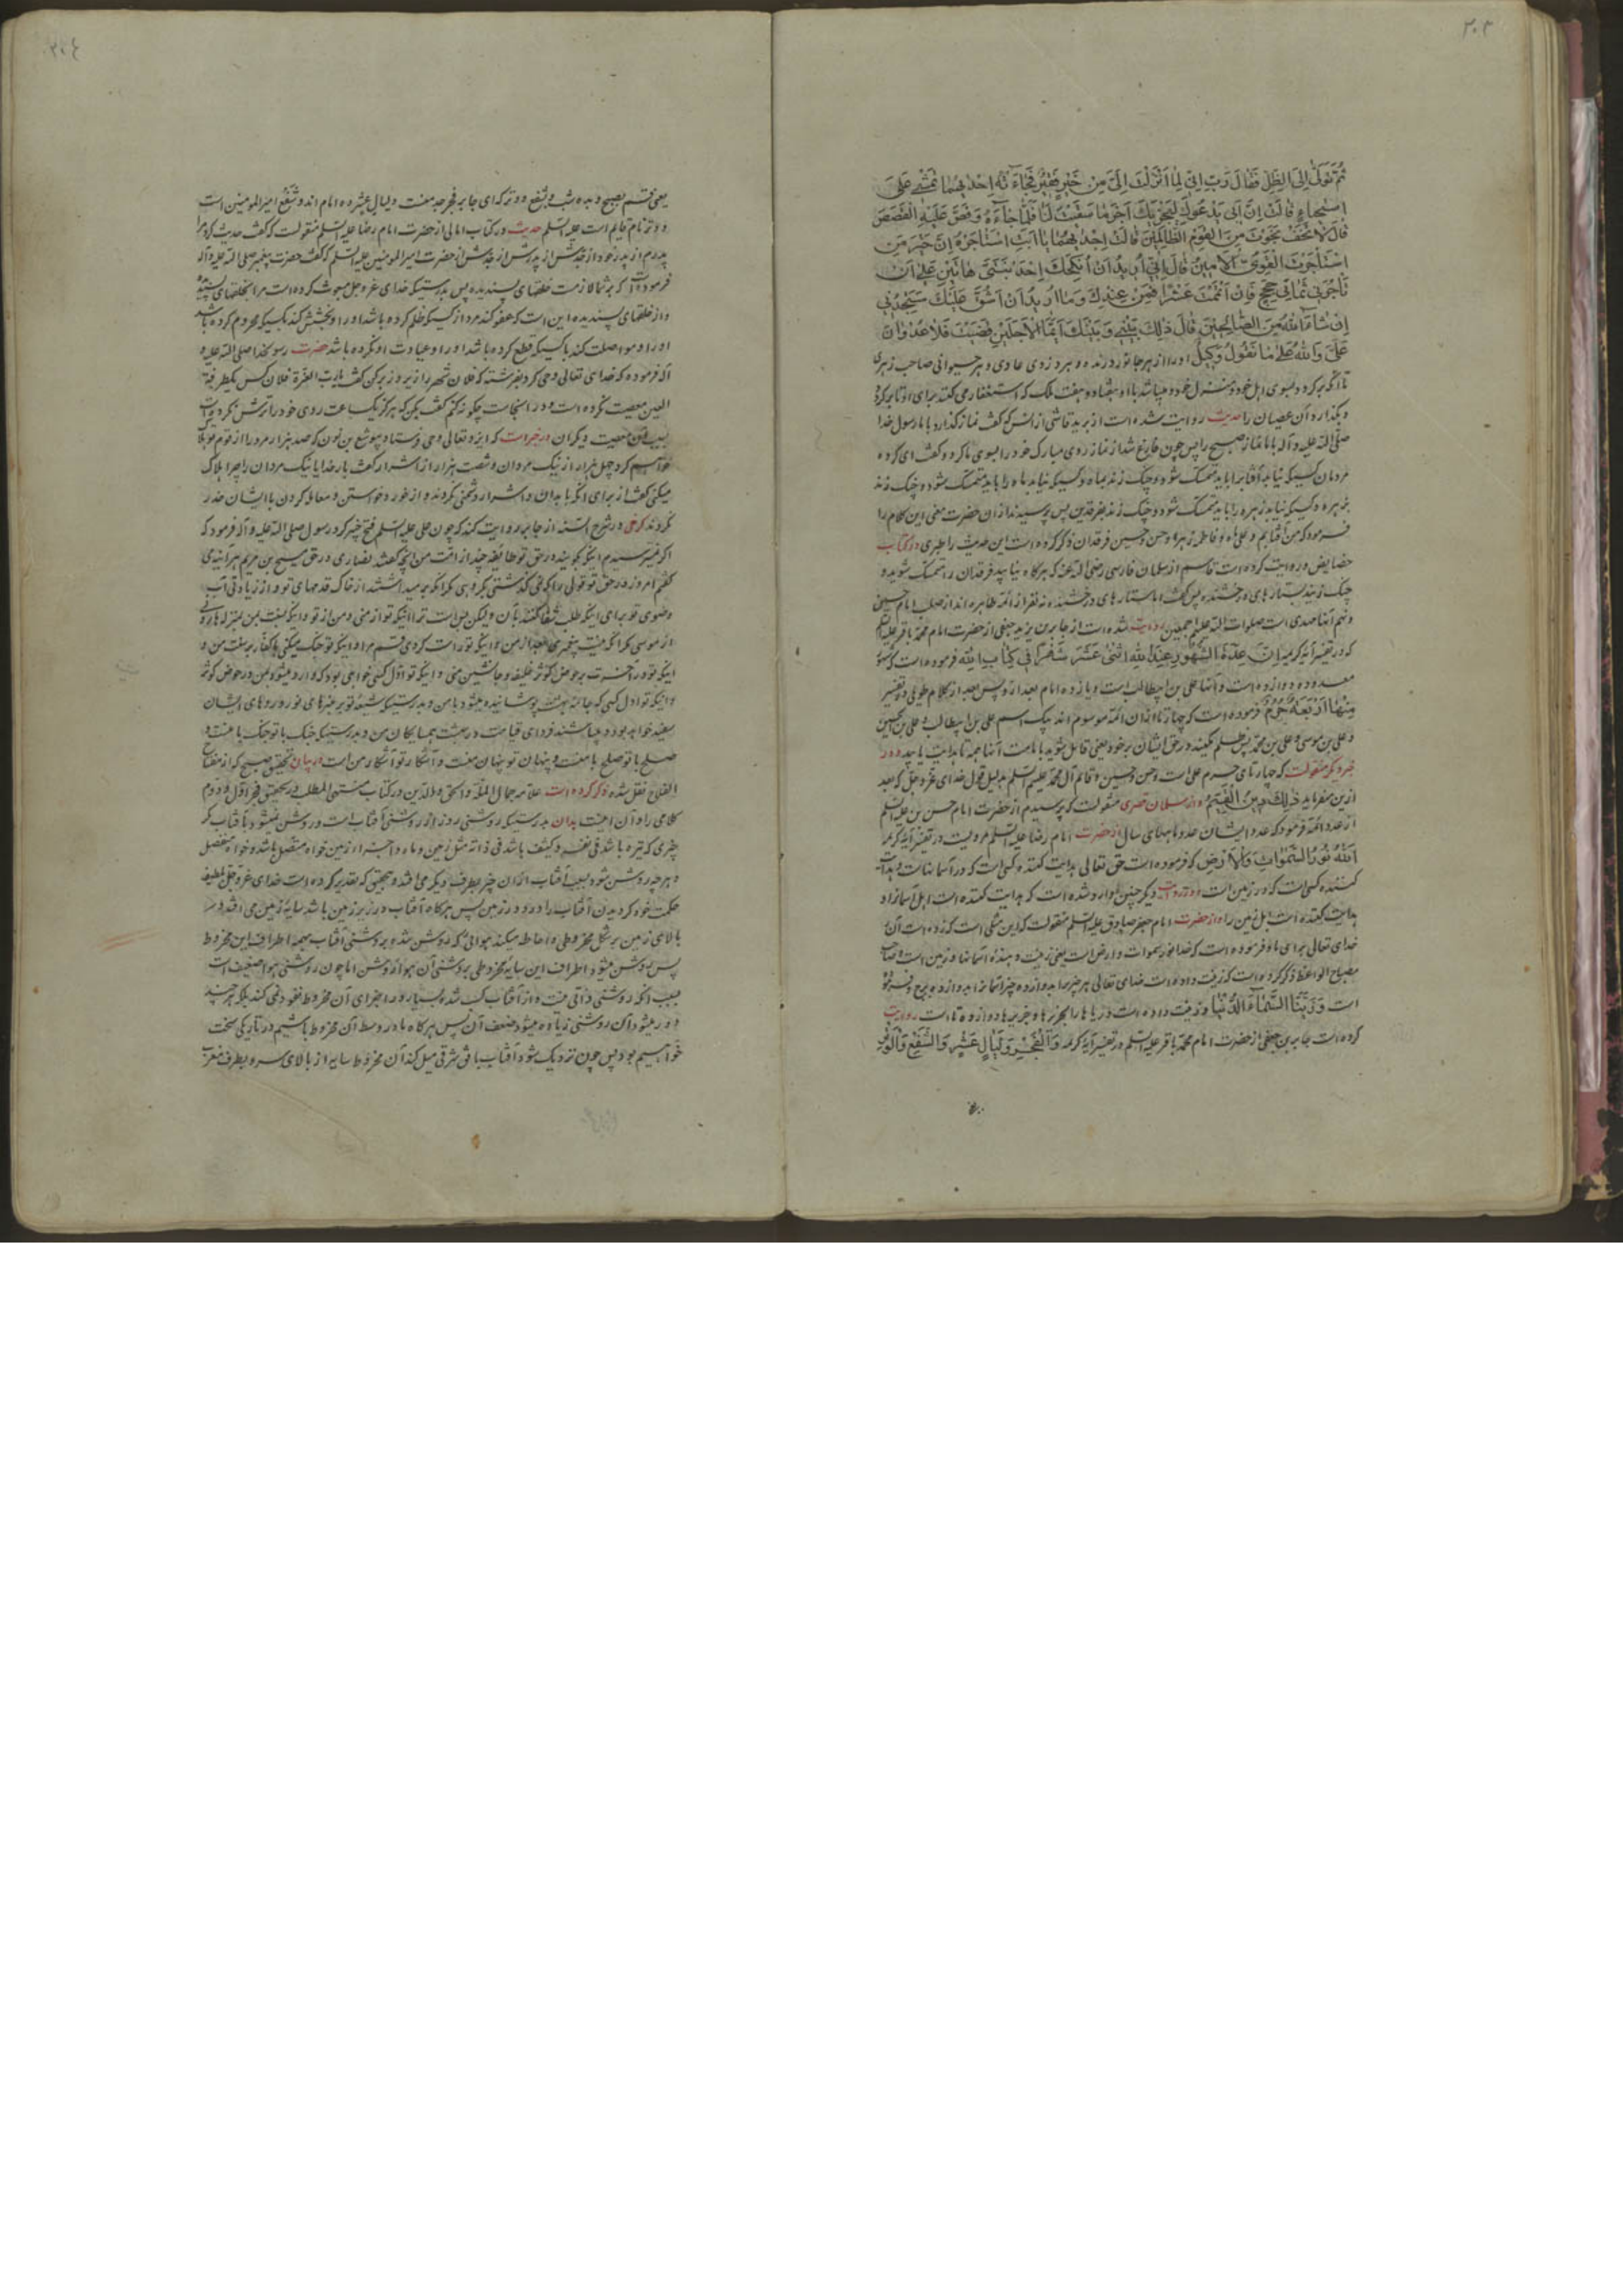 ۳۰۳
ثُمَّ تَوَلّٰى اِلَى الظِّلِّ فَقٰالَ رَبِّ اِنّى لِمٰا اَنْزَلْتَ اِلَىَّ مِنْ خَيْرٍ فَقيرٌ فَجٰاءَتْهُ اِحْدٰيهُمٰا تَمْشى عَلَى
اسْتِحْيٰاءٍ قٰالَتْ اِنَّ اَبى يَدْعُوكَ لِيَجْزِيَكَ اَجْرَ مٰا سَقَيْتَ لَنٰا فَلَمّٰا جٰاءَهُ وَقَصَّ عَلَيْهِ الْقَصَصَ
قٰالَ لٰا تَخَفْ نَجَوْتَ مِنَ الْقَوْمِ الظّٰالِمينَ قٰالَتْ اِحْدٰيهُمٰا يٰا اَبَتِ اسْتَأْجِرْهُ اِنَّ خَيْرَ مَنِ
اسْتَأْجَرْتَ الْقَوِىُّ الْاَمينُ قٰالَ اِنّى اُريدُ اَنْ اُنْكِحَكَ اِحْدَى ابْنَتَىَّ هٰاتَيْنِ عَلٰى اَنْ
تَأْجُرَنى ثَمٰانِىَ حِجَجٍ فَاِنْ اَتْمَمْتَ عَشْرًا فَمِنْ عِنْدِكَ وَمٰا اُريدُ اَنْ اَشُقَّ عَلَيْكَ سَتَجِدُنى
اِنْ شٰاءَ اللّٰهُ مِنَ الصّٰالِحينَ قٰالَ ذٰلِكَ بَيْنى وَبَيْنَكَ اَيَّمَا الْاَجَلَيْنِ قَضَيْتُ فَلٰا عُدْوٰانَ
عَلَىَّ وَاللّٰهُ عَلٰى مٰا نَقُولُ وَكيلٌ او را از هر جانور درنده و هر دزدی عادی و هر حیوانی صاحب زهری
تا آنکه برکردد بسوی اهل خود و منزل خود و میباشد با او هفتاد و هفت ملک که استغفار می کنند برای او تا برکردد
و بگذارد آن عصیان را حدیث روایت شده است از یزید رقاشی از انس که گفت نماز گذارد با ما رسول خدا
صلّی الله علیه و آله با ما نماز صبح را پس چون فارغ شد از نماز روی مبارک خود را بسوی ما کرد و گفت ای کروه
مردمان کسیکه نیابد آفتاب را باید متمسک شود و چنک زند بماه و کسیکه نیابد ماه را باید متمسک شود و چنک زند
بزهره و کسیکه نیابد زهره را باید متمسک شود و چنک زند بفرقدین پس پرسیدند از آن حضرت معنی این کلام را
فرمود که من آفتابم و علی ماه و فاطمه زهره و حسن و حسین فرقدان ذکر کرده است این حدیث را طبری در کتاب
خصایص و روایت کرده است قاسم از سلمان فارسی رضی الله عنه که هرکاه نیابید فرقدان را متمسک شوید و
چنک زنید بستارهای درخشنده پس گفت اما ستارهای درخشنده نه نفر از ائمّه طاهره اند از صلب امام حسین
و نهم آنها مهدی است صلوات الله علیهم اجمعین روایت شده است از جابر بن یزید جعفی از حضرت امام محمّد باقر علیه السّلم
که در تفسیر آیه کریمه اِنَّ عِدَّةَ الشُّهُورِ عِنْدَ اللّٰهِ اثْنٰى عَشَرَ شَهْرًا فى كِتٰابِ اللّٰهِ فرموده است که
معدوده دوازده است و آنها علی بن ابیطالب است و یازده امام بعد از او پس بعد از کلام طویلی در تفسیر
مِنْهٰا اَرْبَعَةٌ حُرُمٌ فرموده است که چهار تا از آن ائمّه موسوم اند بیک اسم علی بن ابیطالب و علی بن الحسین
و علی بن موسی و علی بن محمّد پس ظلم مکنید در حق ایشان بر خود یعنی قایل شوید بامامت آنها همه تا هدایت یابید و در
خبر دیکر منقولست که چهار تای حرم علی است و حسن و حسین و قائم آل محمّد علیهم السّلم بدلیل قول خدای عزّ و جلّ که بعد
ازین میفرماید ذٰلِكَ الدّينُ الْقَيِّمُ و از سلمان قصری منقولست که پرسیدم از حضرت امام حسن بن علی علیه السّلم
از عدد ائمّه فرمود که عدد ایشان عدد ماههای سال از حضرت امام رضا علیه السّلم مرویست در تفسیر آیه کریمه
اَللّٰهُ نُورُ السَّمٰوٰاتِ وَالْاَرْضِ که فرموده است حق تعالی هدایت کننده کسی است که در آسمانهاست و هدایت
کننده کسی است که در زمین است و در روایت دیکر چنین وارد شده است که هدایت کننده است اهل آسمانرا و
هدایت کننده است اهل زمین را و از حضرت امام جعفر صادق علیه السّلم منقولست که این مثلی است که زده است آن
خدای تعالی برای ما و فرموده است که خدا نور سموات و ارض است یعنی زینت دهنده آسمانها و زمین است و صاحب
مصباح الواعظ ذکر کرده است که زینت داده است خدای تعالی هر چیز را بدوازده چیز آسمانرا بدوازده برج و فرموده
است وَزَيَّنَّا السَّمٰاءَ الدُّنْيٰا و زینت داده است دریاها را بجزیرها و جزیرها دوازده تا است روایت
کرده است جابر بن جعفی از حضرت امام محمّد باقر علیه السّلم در تفسیر آیه کریمه وَالْفَجْرِ وَلَيٰالٍ عَشْرٍ وَالشَّفْعِ وَالْوَتْرِ
یعنی قسم بصبح و بده شب و بشفع و وتر که ای جابر فجر جد منست و لیال عشر ده امام اند و شفع امیر المومنین است
و وتر نام قایم است علیه السّلم حدیث در کتاب امالی از حضرت امام رضا علیه السّلم منقولست که گفت حدیث کرد مرا
پدرم از پدر خود از جدش از پدرش از جدش از حضرت امیر المومنین علیه السّلم که گفت حضرت پیغمبر صلی الله علیه و آله
فرموده است که بر شما لازمست خلقهای پسندیده پس بدرستیکه خدای عز و جل مبعوث کرده است مرا بخلقهای پسندیده
و از خلقهای پسندیده این است که عفو کند مرد از کسیکه ظلم کرده باشد او را و بخشش کند بکسیکه محروم کرده باشد
او را و مواصلت کند با کسیکه قطع کرده باشد او را و عیادت او نکرده باشد حضرت رسول خدا صلی الله علیه و
آله فرموده که خدای تعالی وحی کرد بفرشته که فلان شهر را زیر و زبر کن گفت یا رب العزّة فلان کس یکطرفة
العین معصیت نکرده است و در اینجاست چکونه کنم گفت بکن که هرکز یکساعت روی خود را ترش نکرده است
بسبب معصیت دیکران در خبر است که ایزد تعالی وحی فرستاد بیوشع بن نون که صد هزار مرد را از قوم تو هلاک
خواهیم کرد چهل هزار از نیک مردان و شصت هزار از اشرار گفت بار خدایا نیک مردان را چرا هلاک
میکنی گفت از برای آنکه با بدان و اشرار دشمنی نکردند و از خور و خواستن و معامله کردن با ایشان حذر
نکردند در شرح السّنّه از جابر روایت کند که چون علی علیه السّلم فتح خیبر کرد رسول صلی الله علیه و آله فرمود که
اکر نمیترسیدم اینکه بکویند در حق تو طائفه چند از امّت من آنچه گفتند نصاری در حق مسیح بن مریم هر آینه می
گفتم امروز در حق تو قولی را که نمی گذشتی بکروهی مکر آنکه برمیداشتند از خاک قدمهای تو و از زیادتی آب
وضوی تو برای اینکه طلب شفا کنند بآن و لیکن بس است ترا اینکه تو از منی و من از تو و اینکه نسبت بمن بمنزله هارونی
از موسی مکر آنکه نیست پیغمبری بعد از من و اینکه تو و اینکه تو جنک میکنی با کفار بر سنّت من و
اینکه تو در آخرت بر حوض کوثر خلیفه و جانشین منی و اینکه تو اوّل کسی خواهی بود که وارد میشود بمن در حوض کوثر
و اینکه تو اول کسی که جامه بهشت پوشانیده میشود با من و بدرستیکه شیعه تو بر منبرهای نور و روهای ایشان
سفید خواهد بود و میباشند فردای قیامت در بهشت همسایکان من و بدرستیکه جنک با تو جنک با منست و
صلح با تو صلح با منست و پنهان تو پنهان منست و آشکار تو آشکار من است در بیان تحقیق صبح که از مفتاح
الفلاح نقل شده ذکر کرده است علامه جمال الملّة و الحق و الدّین در کتاب منتهی المطلب در تحقیق فجر اوّل و دوم
کلامی را و آن اینست بدان بدرستیکه روشنی روز از روشنی آفتاب است و روشن نمیشود بآفتاب مکر
چیزی که تیره باشد فی نفسه و کثیف باشد فی ذاته مثل زمین و ماه و اجزاء زمین خواه متصل باشد و خواه منفصل
و هرچه روشن شود بسبب آفتاب از آن چیز بطرف دیکر می افتد و بتحقیق که تقدیر کرده است خدای عز و جل بلطیف
حکمت خود کردیدن آفتاب را در دور زمین پس هرکاه آفتاب در زیر زمین باشد سایه زمین می افتد در
بالای زمین بر شکل مخروطی و احاطه میکند هوائی که روشن شده بروشنی آفتاب بهمه اطراف این مخروط
پس روشن میشود اطراف این سایه مخروطی بروشنی آن هوا روشن اما چون روشنی هوا ضعیف است
بسبب آنکه روشنی ذاتی نیست و از آفتاب کسب شده بسیار در اجزای آن مخروط نفوذ نمی کند بلکه هرچند
دور میشود آن روشنی زیاده میشود ضعف آن پس هرکاه ما در وسط آن مخروط باشیم در تاریکی سخت
خواهیم بود پس چون نزدیک شود آفتاب بافق شرقی میل کند آن مخروط سایه از بالای سر و بطرف مغرب